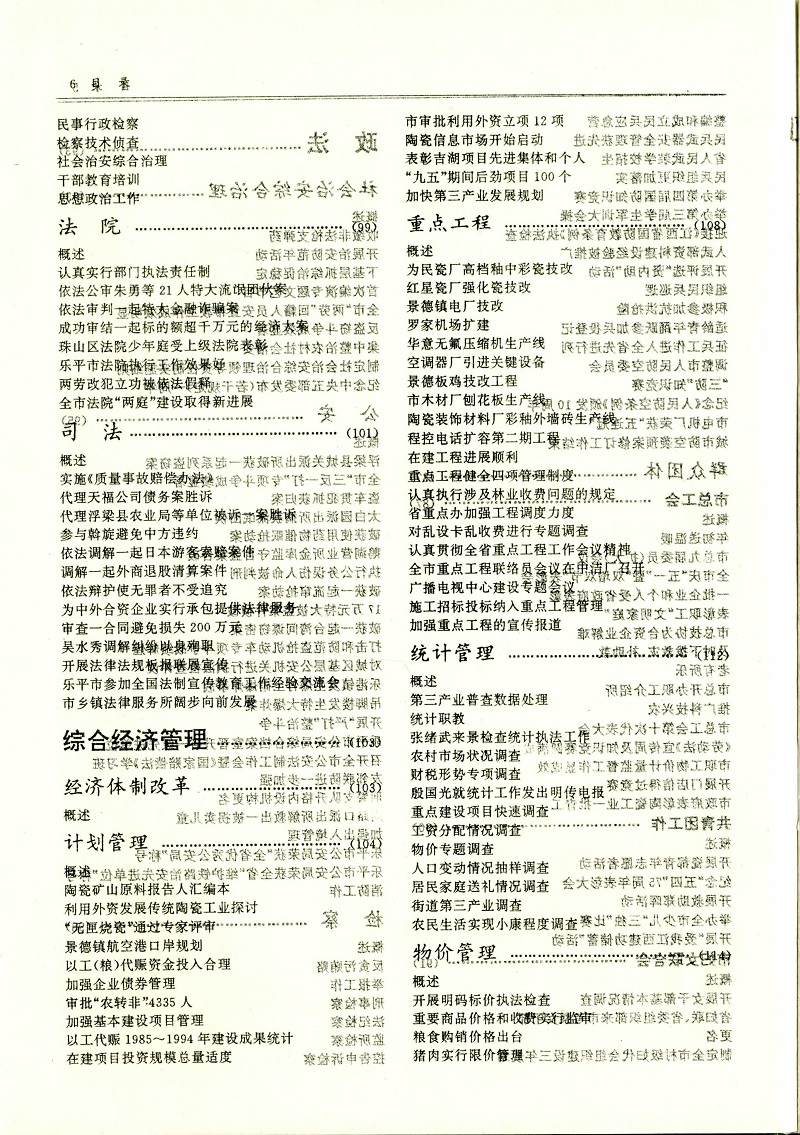 民事行政检察
检察技术侦查
社会治安综合治理
干部教育培训
思想政治工作
法 院 (99)
概述
认真实行部门执法责任制
依法公审朱勇等21人特大流氓团伙案
依法审判一起特大金融诈骗案
成功审结一起标的额超千万元的经济大案
珠山区法院少年庭受上级法院表彰
乐平市法院执行工作效果好
两劳改犯立功被依法假释
全市法院“两庭”建设取得新进展
司 法 (101)
概述
实施《质量事故赔偿办法》
代理天福公司债务案胜诉
代理浮梁县农业局等单位被诉一案胜诉
参与斡旋避免中方违约
依法调解一起日本游客索赔案件
调解一起外商退股清算案件
依法辩护使无罪者不受追究
为中外合资企业实行承包提供法律服务
审查一合同避免损失200万元
吴水秀调解纠纷以身殉职
开展法律法规板报联展宣传
乐平市参加全国法制宣传教育工作经验交流会
市乡镇法律服务所阔步向前发展
综合经济管理 (103)
经济体制改革 (103)
概述
计划管理 (104)
概述
陶瓷矿山原料报告人汇编本
利用外资发展传统陶瓷工业探讨
“无匣烧瓷”通过专家评审
景德镇航空港口岸规划
以工(粮)代赈资金投入合理
加强企业债券管理
审批“农转非”4335人
加强基本建设项目管理
以工代赈1985～1994年建设成果统计
在建项目投资规模总量适度
市审批利用外资立项12项
陶瓷信息市场开始启动
表彰吉湖项目先进集体和个人
“九五”期间后劲项目100个
加快第三产业发展规划
重点工程 (108)
概述
为民瓷厂高档釉中彩瓷技改
红星瓷厂强化瓷技改
景德镇电厂技改
罗家机场扩建
华意无氟压缩机生产线
空调器厂引进关键设备
景德板鸡技改工程
市木材厂刨花板生产线
陶瓷装饰材料厂彩釉外墙砖生产线
程控电话扩容第二期工程
在建工程进展顺利
重点工程健全四项管理制度
认真执行涉及林业收费问题的规定
省重点办加强工程调度力度
对乱设卡乱收费进行专题调查
认真贯彻全省重点工程工作会议精神
全市重点工程联络员会议在电洁厂召开
广播电视中心建设专题会议
施工招标投标纳入重点工程管理
加强重点工程的宣传报道
统计管理 (112)
概述
第三产业普查数据处理
统计职教
张绪武来景检查统计执法工作
农村市场状况调查
财税形势专项调查
殷国光就统计工作发出明传电报
重点建设项目快速调查
工资分配情况调查
物价专题调查
人口变动情况抽样调查
居民家庭送礼情况调查
街道第三产业调查
农民生活实现小康程度调查
物价管理 (114)
概述
开展明码标价执法检查
重要商品价格和收费实行监审
粮食购销价格出台
猪肉实行限价管理